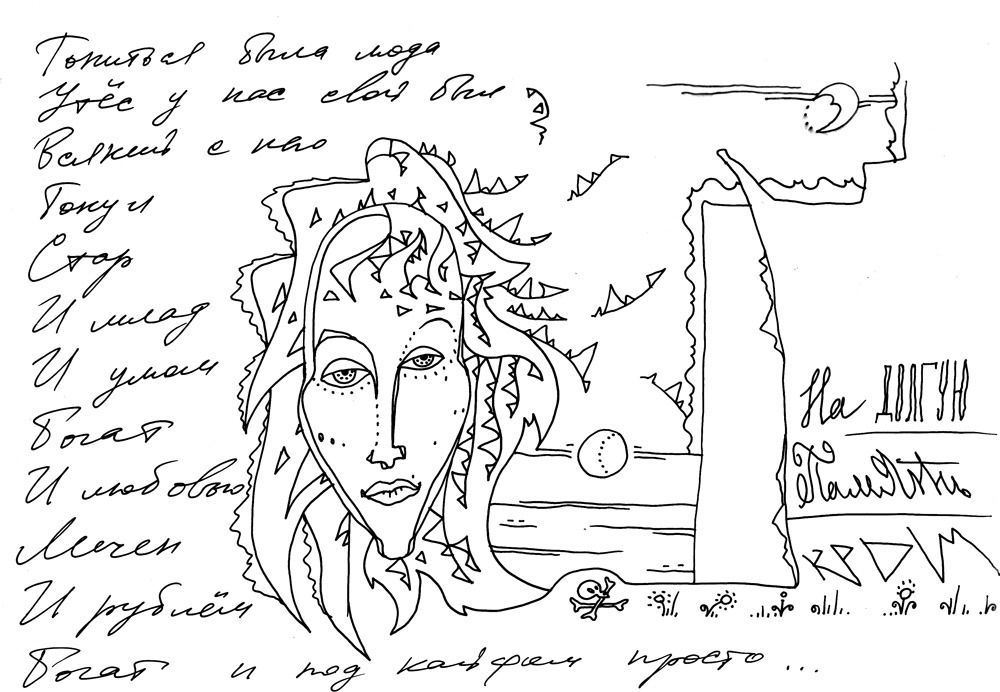 Топиться была мода
Утёс у нас свой был
Всякий с него
Тонул
Стар
И млад
И умом
Богат
И любовью
Мечен
И рублём
Богат и под кайфом просто ...
На
Память
КРЫМ